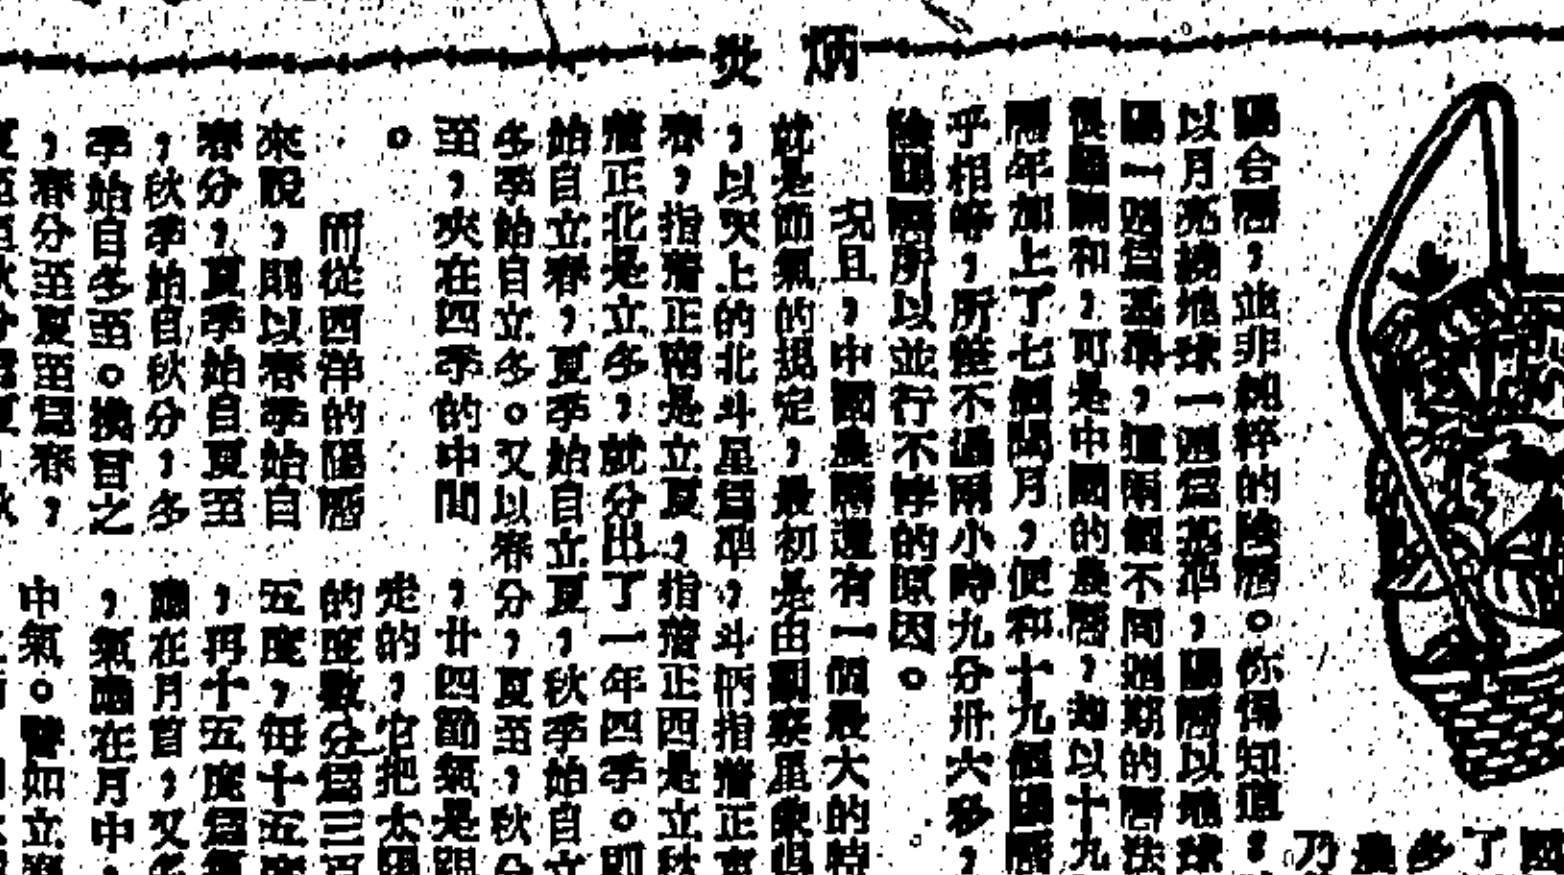 炳
國
了
冬
農
乃
陽合曆,並非純粹的陰曆。你得知道,
以月亮繞地球一週為基準,陽曆以地球
陽一週為基準,這兩個不同週期的曆法
復歸調和,可是中國的農曆,却以十九
年加上了七個閏月,便和十九個陽曆
乎相等,所差不過兩小時九分卅六秒,
陰陽曆所以並行不悖的原因。
況且,中國農曆還有一個最大的特
就是節氣的規定,最初是由觀察星象
,以天上的北斗星為準,斗柄指着正東
春,指着正南是立夏,指着正西是立秋
着正北是立冬,就分出了一年四季。則
始自立春,夏季始自立夏,秋季始自立
冬季始自立冬。又以春分,夏至,秋分
至,夾在四季的中間
。
而從西洋的陽曆
來說,則以春季始自
春分,夏季始自夏至
,秋季始自秋分,冬
季始自冬至。換言之
,春分至夏至為春,
夏至至秋分為夏,秋
,廿四節氣是跟
走的,它把太陽
的度數分為三百
五度,每十五度
,再十五度為氣
應在月首,又名
,氣應在月中,
中氣。譬如立春